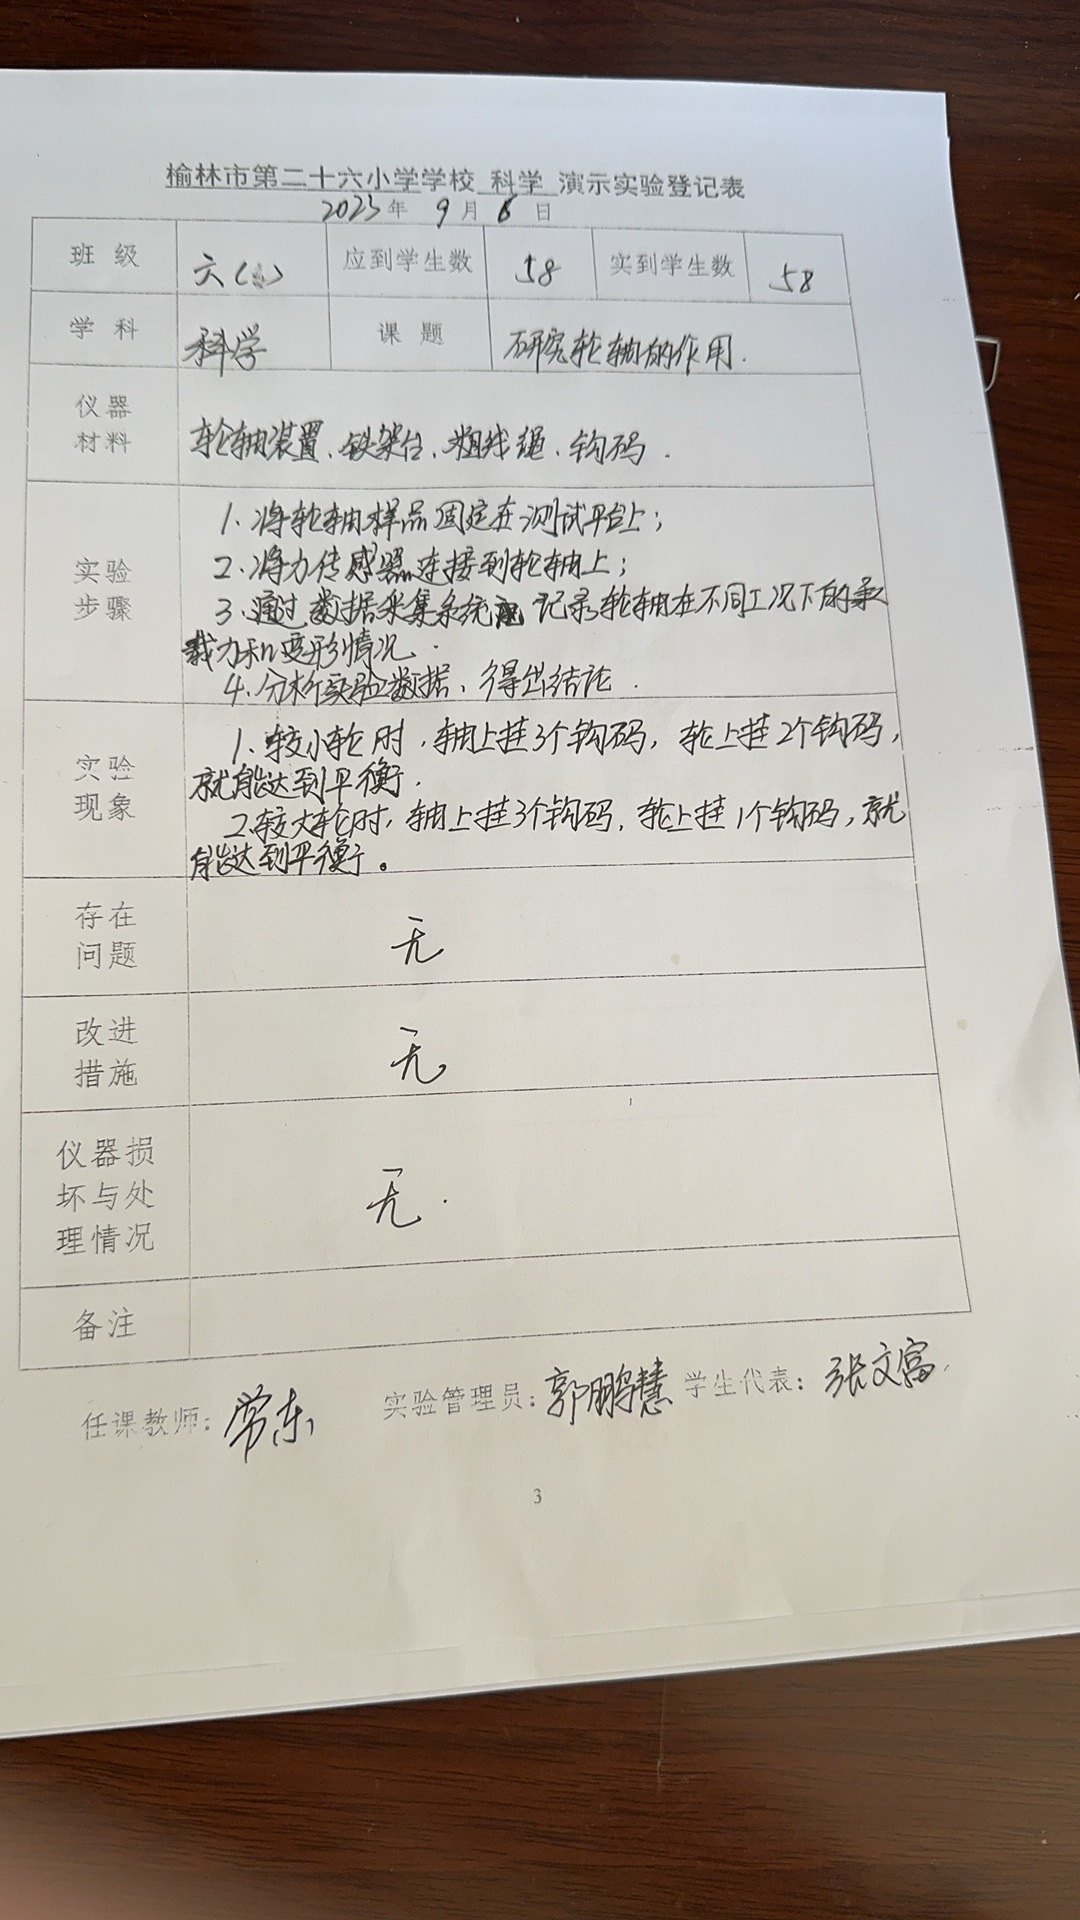 榆林市第二十六小学学校 科学 演示实验登记表
2023年 9月 6日
班级 六( ) 应到学生数 58 实到学生数 58
学科 科学 课题 研究轮轴的作用.
仪器材料 轮轴装置、铁架台、粗线绳、钩码.
实验步骤 1. 将轮轴样品固定在测试平台上;
2. 将力传感器连接到轮轴上;
3. 通过数据采集系统 记录轮轴在不同工况下的承
载力和变形情况.
4. 分析实验数据、得出结论.
实验现象 1. 较小轮时,轴上挂3个钩码,轮上挂2个钩码,
就能达到平衡.
2. 较大轮时,轴上挂3个钩码,轮上挂1个钩码,就
能达到平衡。
存在问题 无
改进措施 无
仪器损坏与处理情况 无.
备注
任课教师: 常东 实验管理员: 郭鹏慧 学生代表: 张文富
3